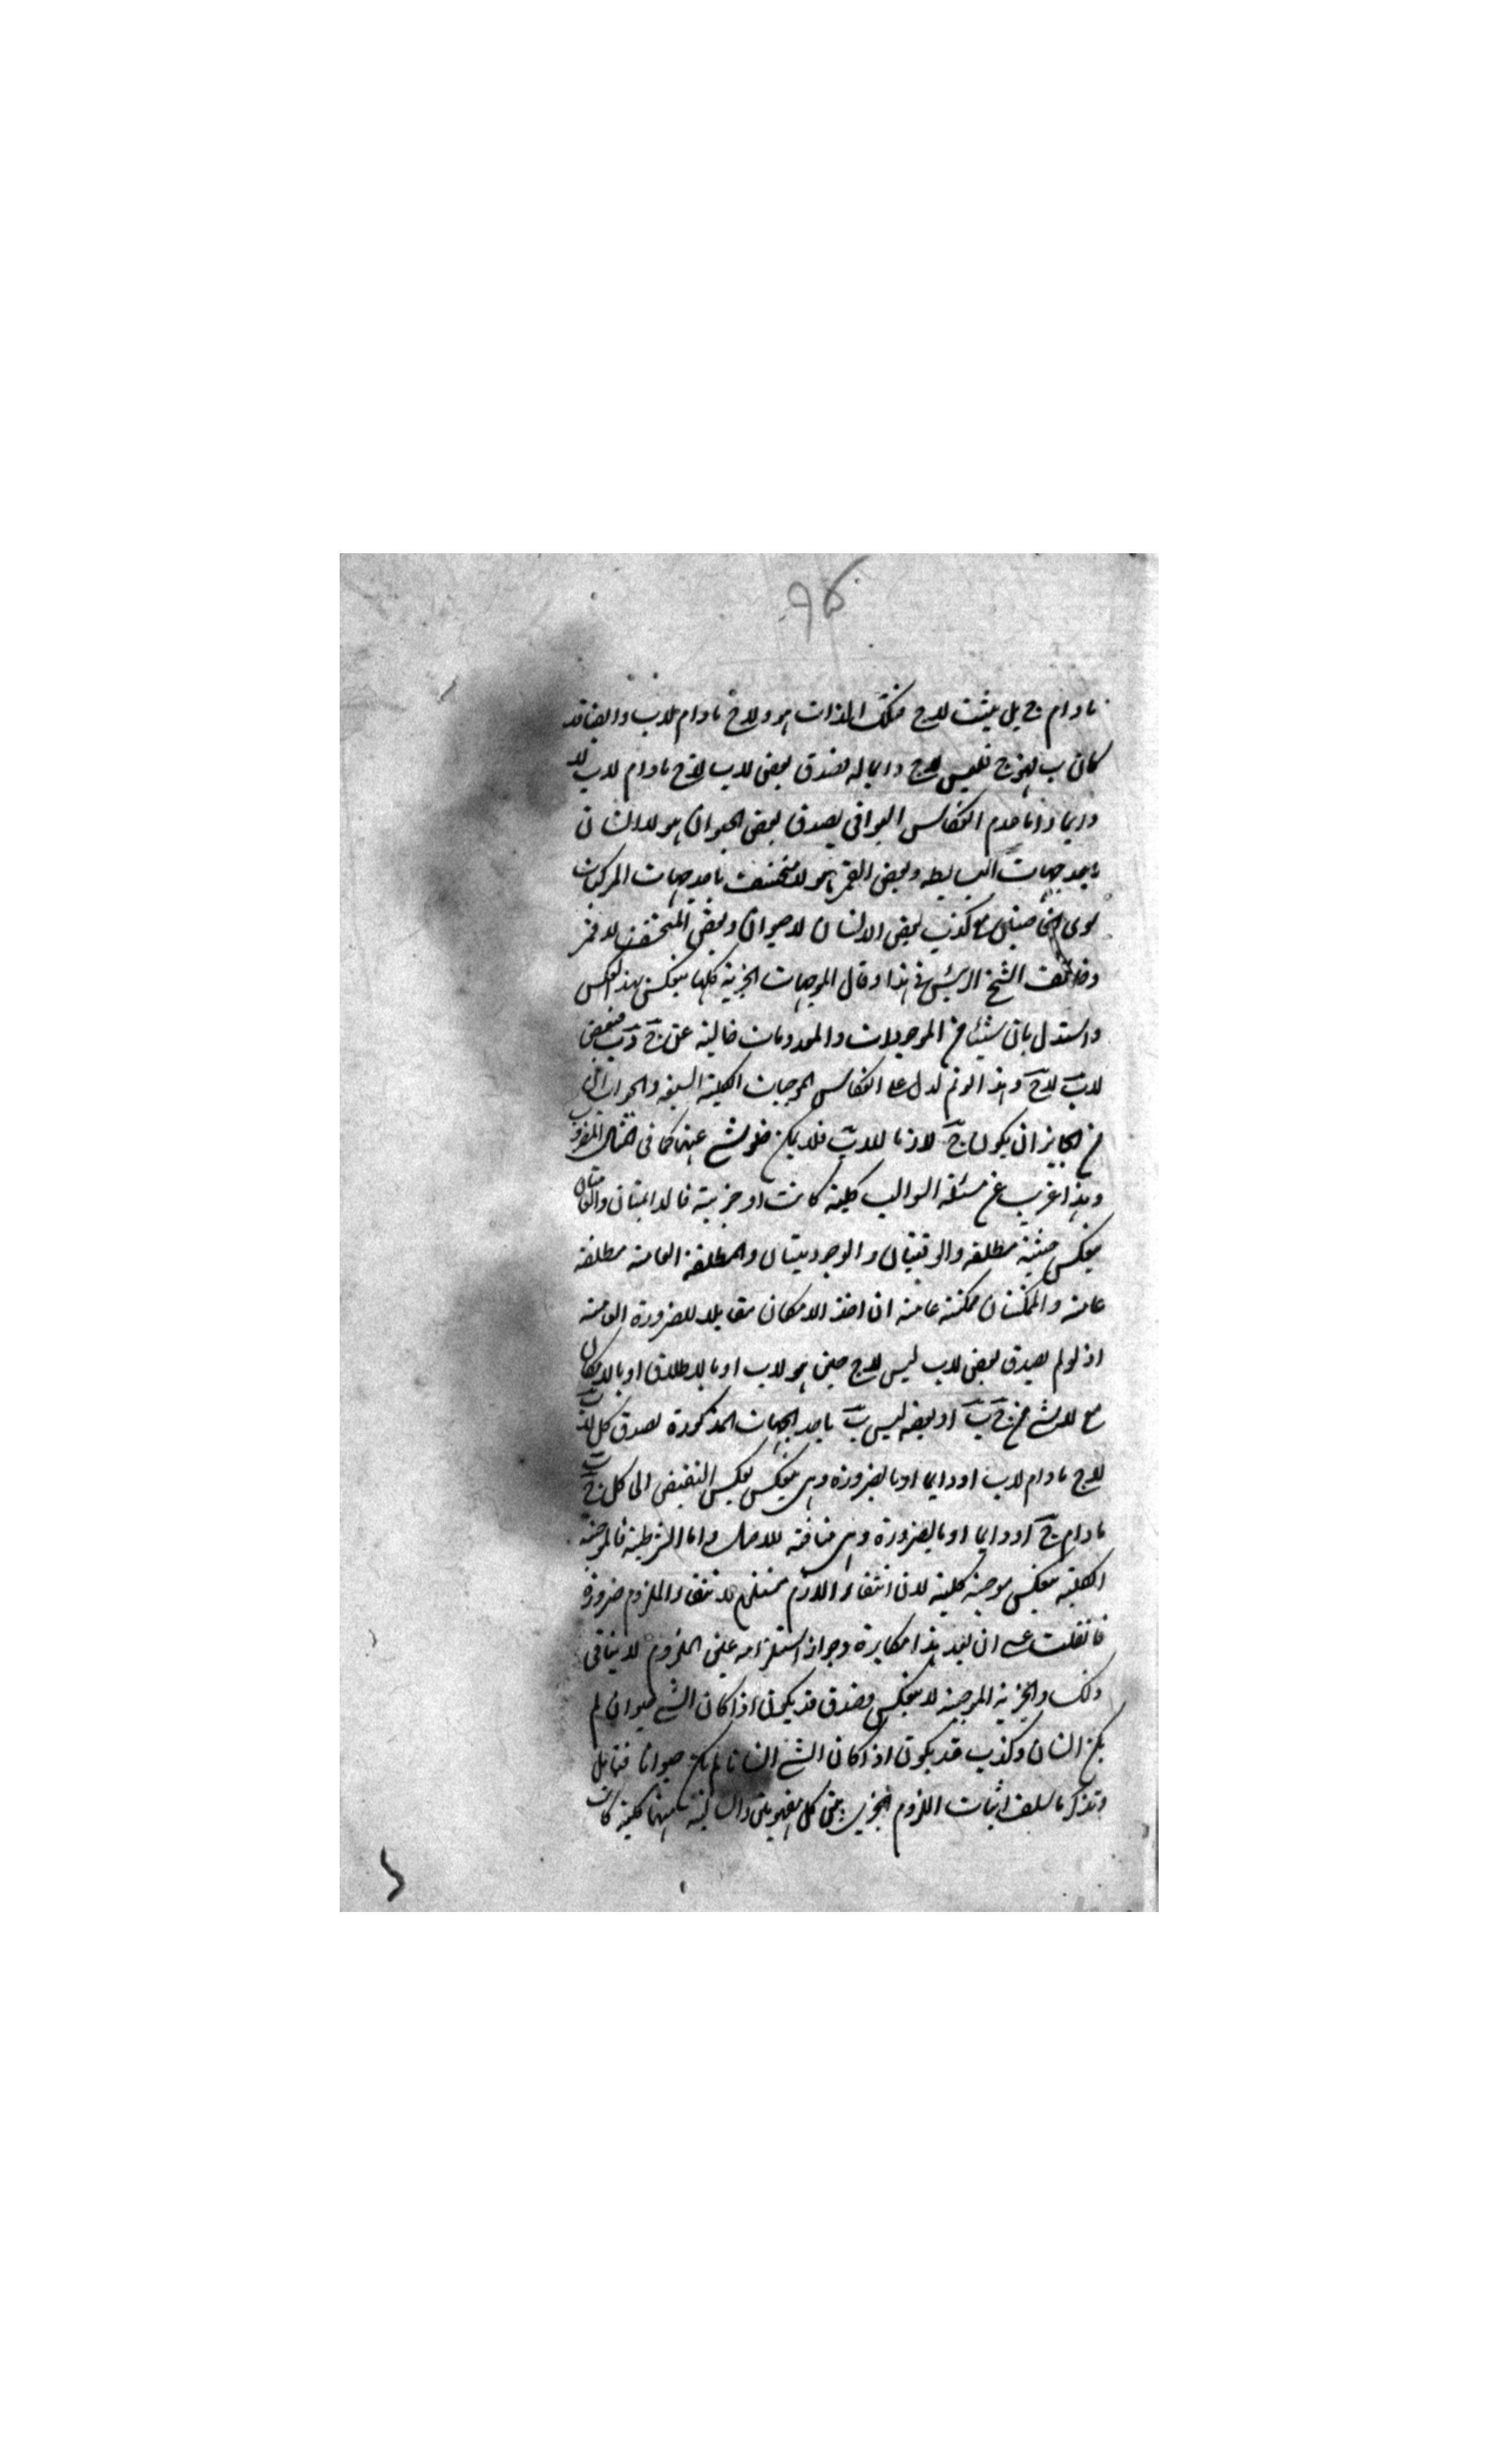 ۹۵
مادام ج بل يثبت للاج فتلك الذات هو ولاج مادام لاب وايضا قد
كان ب لهو ج فليس لاج دايما له فصدق بعض لاب لاج مادام لاب لا
دايما واما عدم انعكاس البواقى يصدق بعض الحيوان هو لا انسان
باحد جهات البسايطه وبعض القمر هو لا منخسف باحد جهات المركبات
سوى الخاصتين مع كذب بعض الانسان لا حيوان وبعض المنخسف لا قمر
وخالف الشيخ الرئيس فى هذا وقال الموجبات الجزئية كلها ينعكس بهذا العكس
واستدل بان شيئا من الموجودات والمعدومات خالية عن ج و ب فبعض
لاب لاج وهذا لو تم لدل على انعكاس الموجبات الكلية السبعة والجواب ان
من الجايز ان يكون ج لازما للاب فلا يمكن خلو شئ عنهما كما فى المثال المضروب
وهذا غريب عن مسئلة السوالب كلية كانت او جزئية فالدايمتان والعامتان
ينعكس حينية مطلقه والوقتيتان والوجوديتان والمطلقة العامة مطلقة
عامة والممكنتان ممكنة عامة ان اخذ الامكان مقابلا للضرورة العامة
اذ لو لم يصدق بعض لاب ليس لاج حين هو لاب او بالاطلاق او بالامكان
مع لا شئ من ج ب او بعضه ليس ب باحد الجهات المذكورة لصدق كل لاب
لاج مادام لاب او دايما او بالضرورة وهى ينعكس بعكس النقيض الى كل ج ب
مادام ج او دايما او بالضرورة وهى منافية للاصل واما الشرطية فالموجبة
الكلية ينعكس موجبة كلية لان انتفاء اللازم يستلزم لانتفاء الملزوم ضرورة
فانفلت عسى ان يعد هذا مكابرة وجواز استلزامه عين الملزوم لا ينافى
ذلك والجزئية الموجبة لا ينعكس لصدق قد يكون اذا كان الشئ حيوان لم
يكن انسان وكذب قد يكون اذا كان الشئ انسانا لم يكن حيوانا فتامل
وتذكر ما سلف اثبات اللزوم الجزئى بين كل مفهومين والسالبة منهما كلية كانت